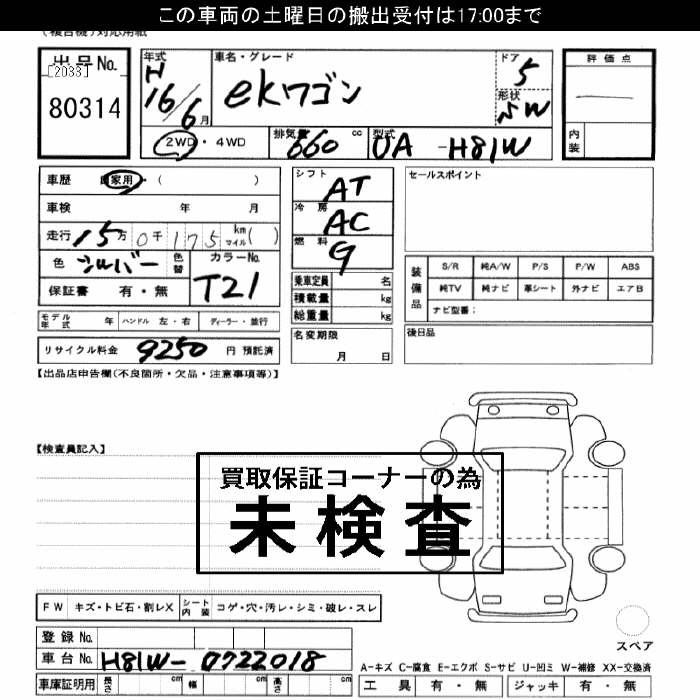 この車両の土曜日の搬出受付は17:00まで
(複合機)対応用紙
出品No.
[2033]
80314
年式
H
16/6月
車名・グレード
ekワゴン
ドア
5
形状
SW
2WD・4WD
排気量
660 cc
型式
UA -H81W
評価点
内装
車歴 自家用・( )
車検 年 月
走行 15万0千175 km マイル( )
色 シルバー 色替
カラーNo.
T21
保証書 有・無
モデル年式 年 ハンドル 左・右 ディーラー・並行
リサイクル料金 9250 円 預託済
シフト
AT
冷房
AC
燃料
G
乗車定員 名
積載量 kg
総重量 kg
名変期限
月 日
セールスポイント
装備品
S/R 純A/W P/S P/W ABS
純TV 純ナビ 革シート 外ナビ エアB
ナビ型番:
後日品
【出品店申告欄(不良箇所・欠品・注意事項等)】
【検査員記入】
買取保証コーナーの為
未検査
FW キズ・トビ石・割レX シート内装 コゲ・穴・汚レ・シミ・破レ・スレ
登録No.
車台No. H81W-0722018
車庫証明用 長さ cm 幅 cm 高さ cm
スペア
A-キズ C-腐食 E-エクボ S-サビ U-凹ミ W-補修 XX-交換済
工具 有・無 ジャッキ 有・無